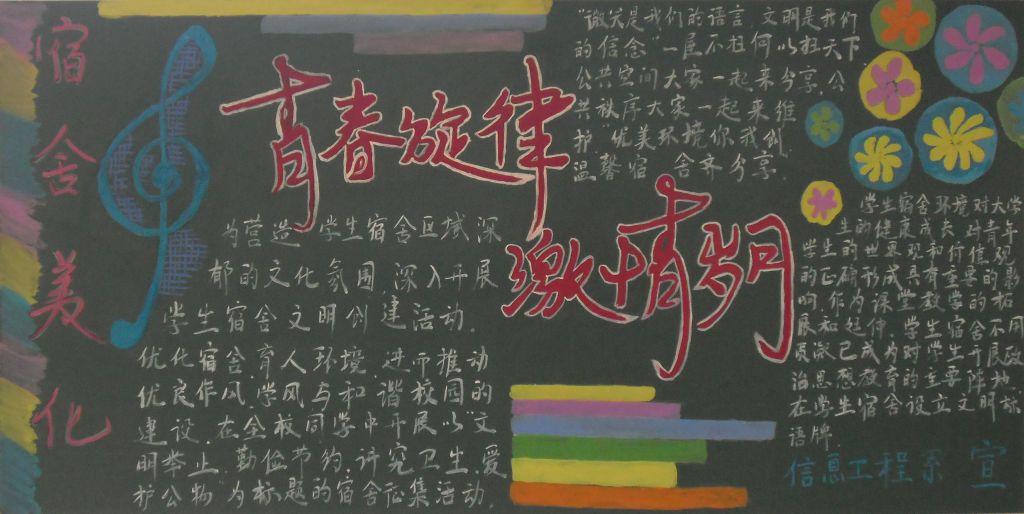 宿舍美化
青春旋律
激情岁月
为营造学生宿舍区域深
郁的文化氛围深入开展
学生宿舍文明创建活动.
优化宿舍育人环境进而推动
优良作风、学风与和谐校园的
建设.在全校同学中开展以“文
明举止、勤俭节约、讲究卫生、爱
护公物”为标题的宿舍征集活动.
“微笑是我们的语言,文明是我们
的信念”一屋不扫何以扫天下
公共空间大家一起来分享,公
共秩序大家一起来维
护“优美环境你我创
温馨宿舍齐分享.
学生宿舍环境对大学
生的健康成长,对青年
学生世界观和价值观
的正确形成具有重要的影
响.作为课堂教学的
治思想教育的主要阵
在学生宿舍设立文明标
语牌.
信息工程系 宣